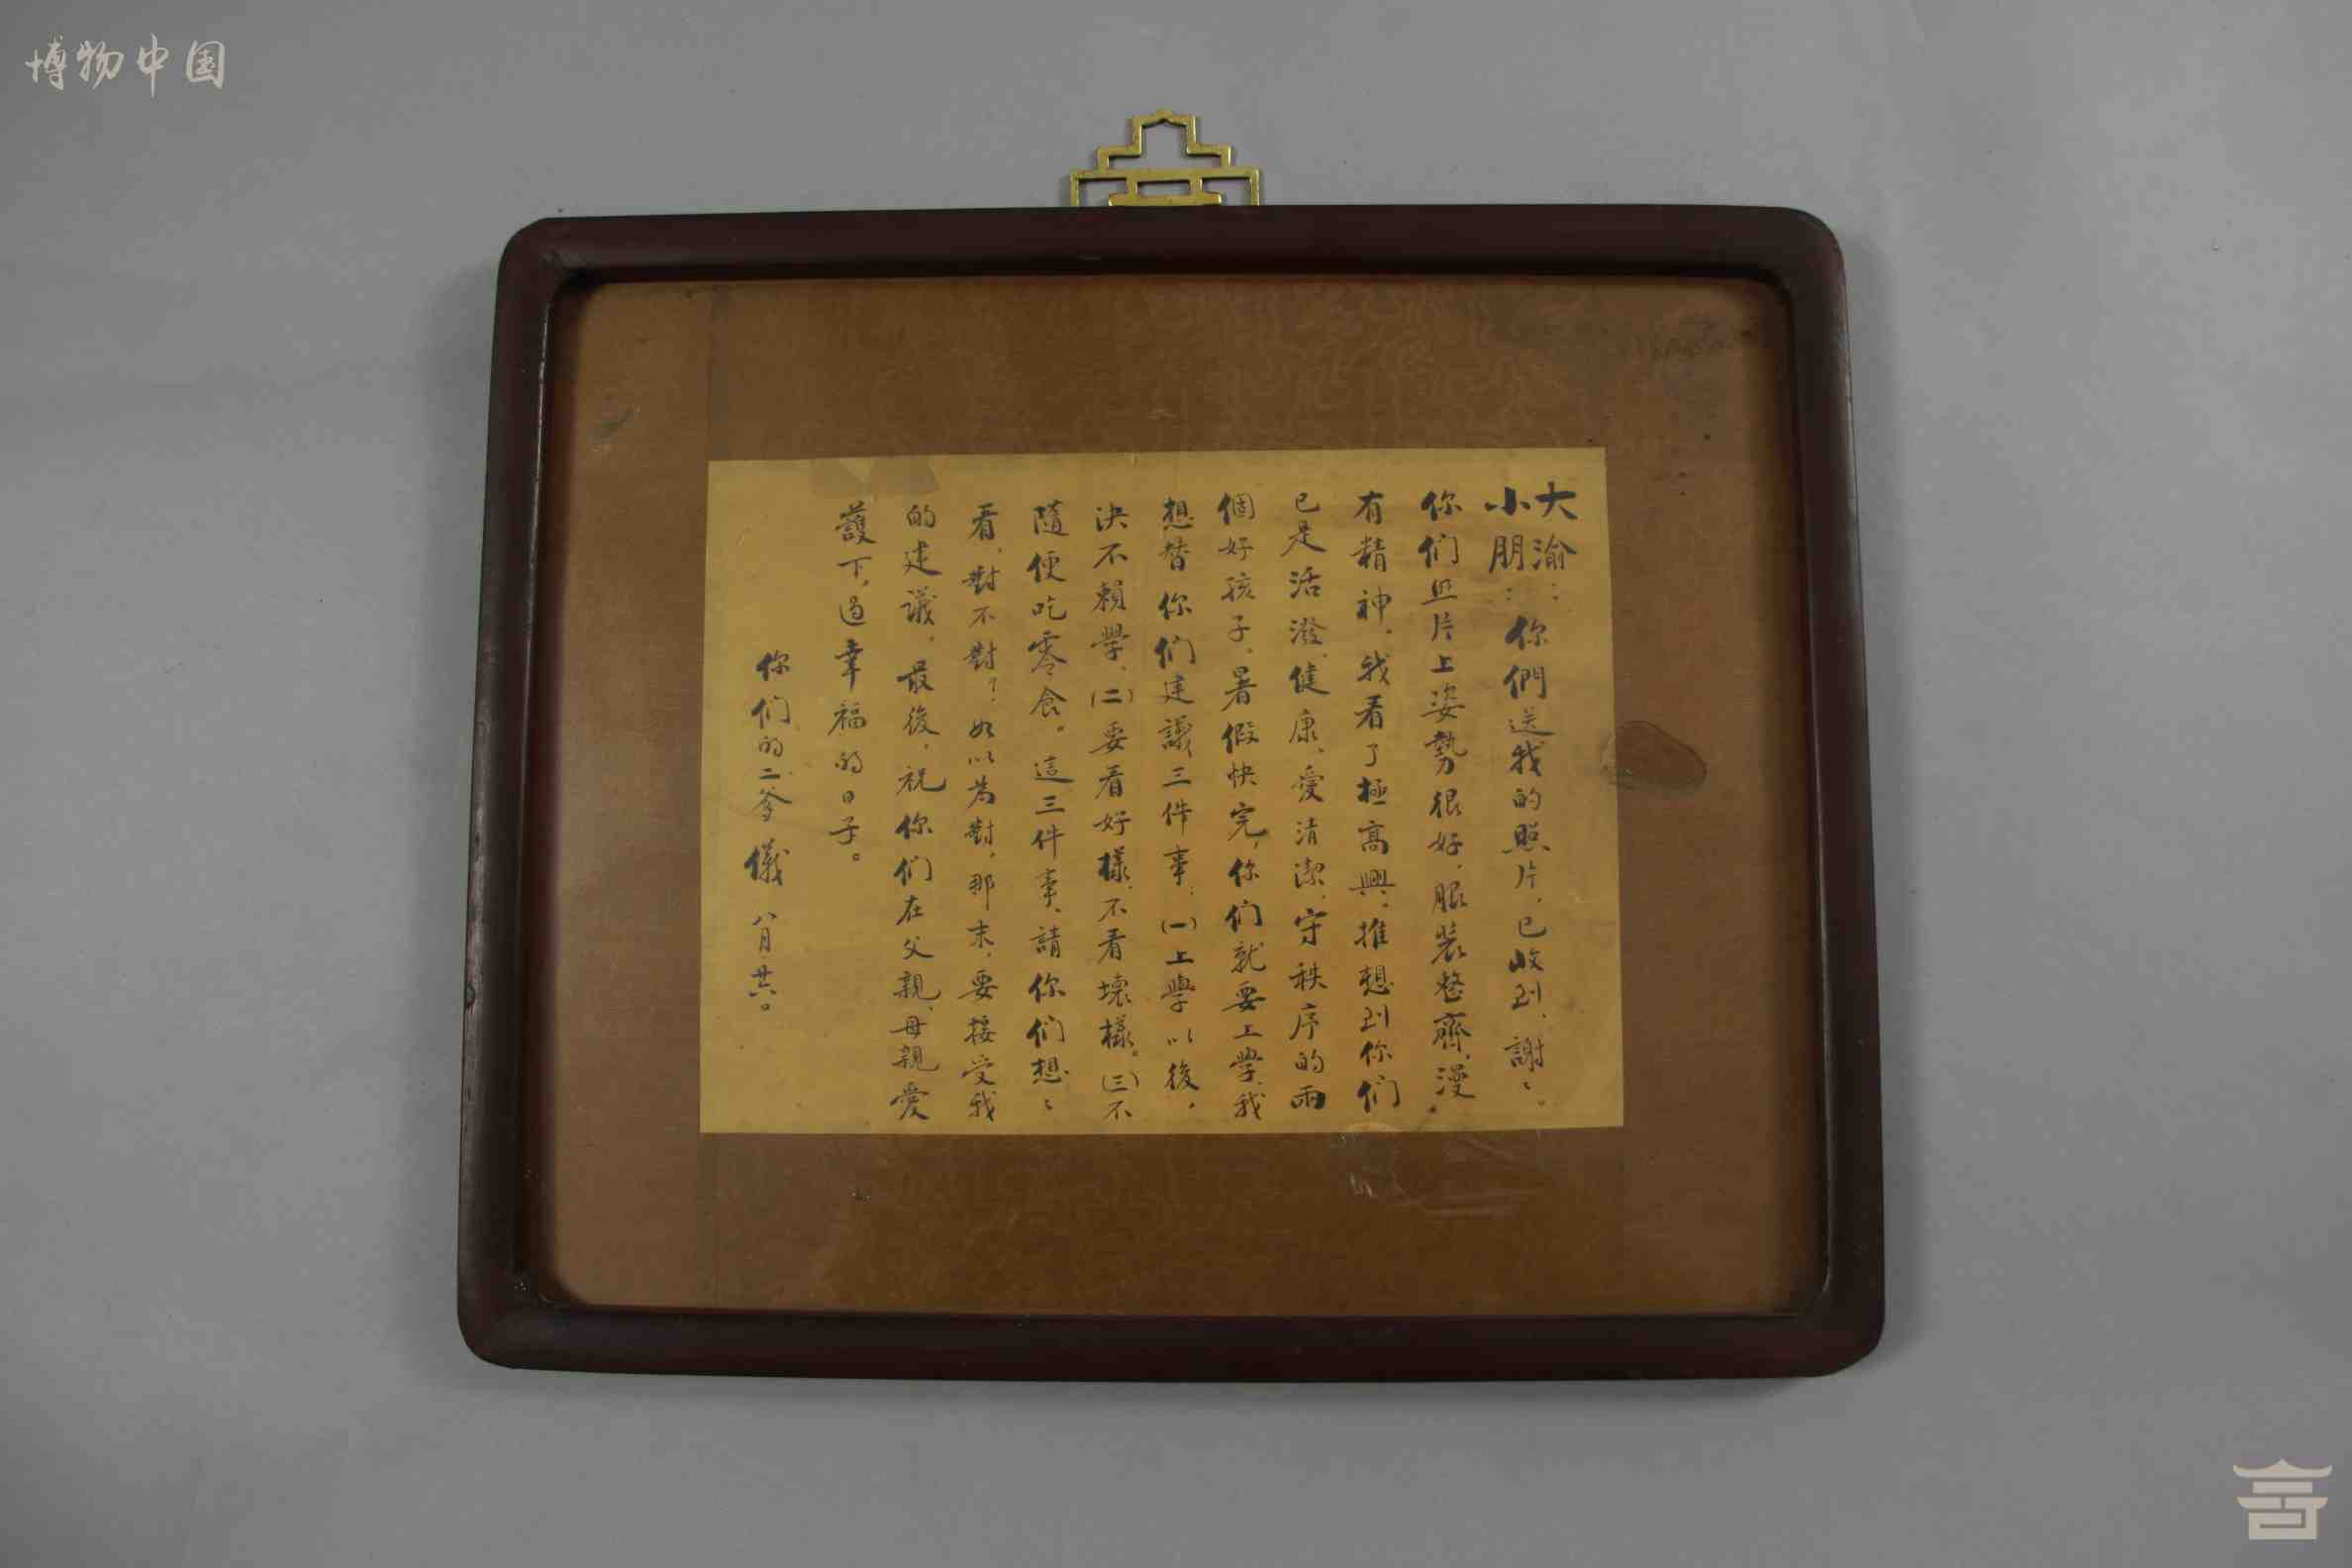 博物中国
大渝：
小朋：
你們送我的照片，已收到，謝〻。
你们照片上姿勢很好，服装整齊，
有精神，我看了極高興，推想到你们
已是活潑、健康、愛清潔、守秩序的兩
個好孩子。暑假快完，你们就要上學，我
想替你们建議三件事：(一)上學以後，
決不賴學，(二)要看好樣，不看壞樣。(三)不
隨便吃零食。這三件事，請你们想〻
看，對不對？如以為對，那末，要接受我
的建議。最後，祝你们在父親、母親愛
護下，過幸福的日子。
你们的二爹 儀 八月廿六。